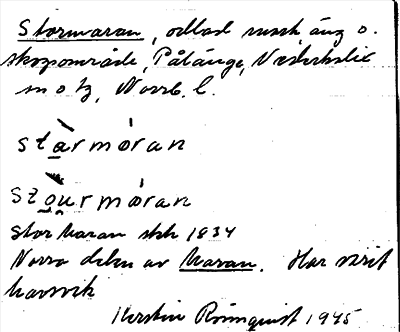 Stormaran, odlad mark, äng o.
skogsområde, Pålänge, Nederkalix
sn o tg, Norrb. l.
starmöran
stourmöran
Stor Maran skk 1834
Norra delen av Maran. Har varit
havsvik
Kerstin Rönnquist 1945